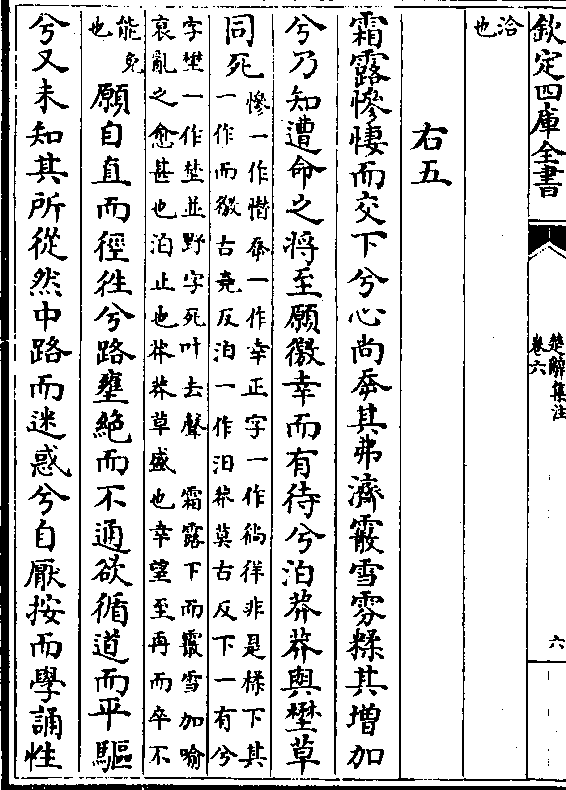 欽定四庫全書
楚辭集注
卷六
六
洽
也
右五
霜露慘悽而交下兮心尚㚔其弗濟霰雪雰糅其增加
兮乃知遭命之將至願徼幸而有待兮泊莽莽與壄草
同死
慘一作憯㚔一作幸正字一作徜徉非是糅下其
一作而徼古堯反泊一作汩莽莫古反下一有兮
字壄一作埜並野字死叶去聲 霜露下而霰雪加喻
衰亂之愈甚也泊止也莽莽草盛也幸望至再而卒不
能免
也
願自直而徑徃兮路壅絶而不通欲循道而平驅
兮又未知其所從然中路而迷惑兮自厭按而學誦性